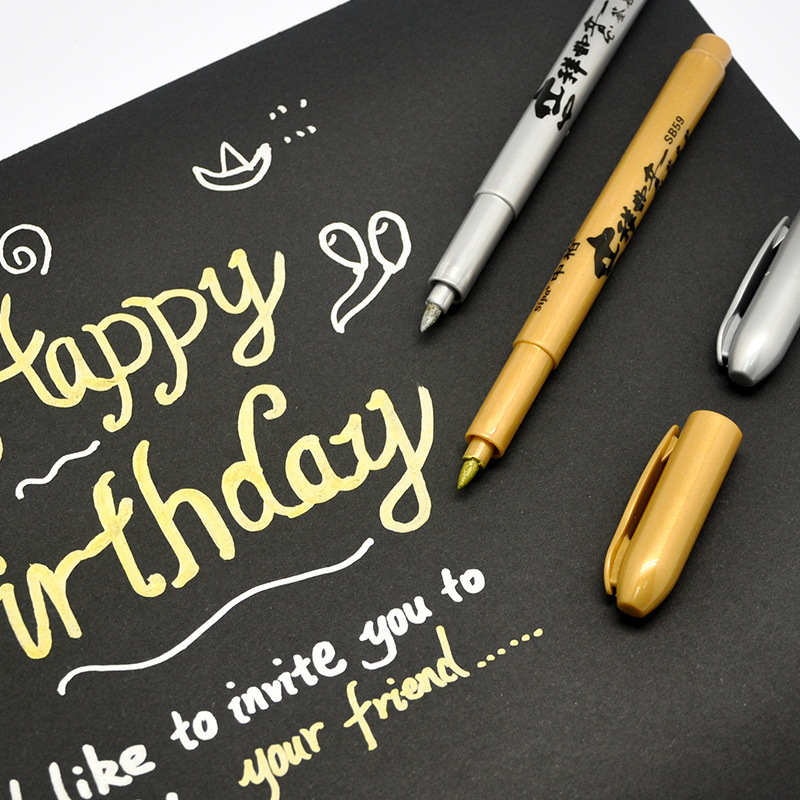 Happy
irthday
like to invite you to
your friend......
SB59
Sipa® 中柏